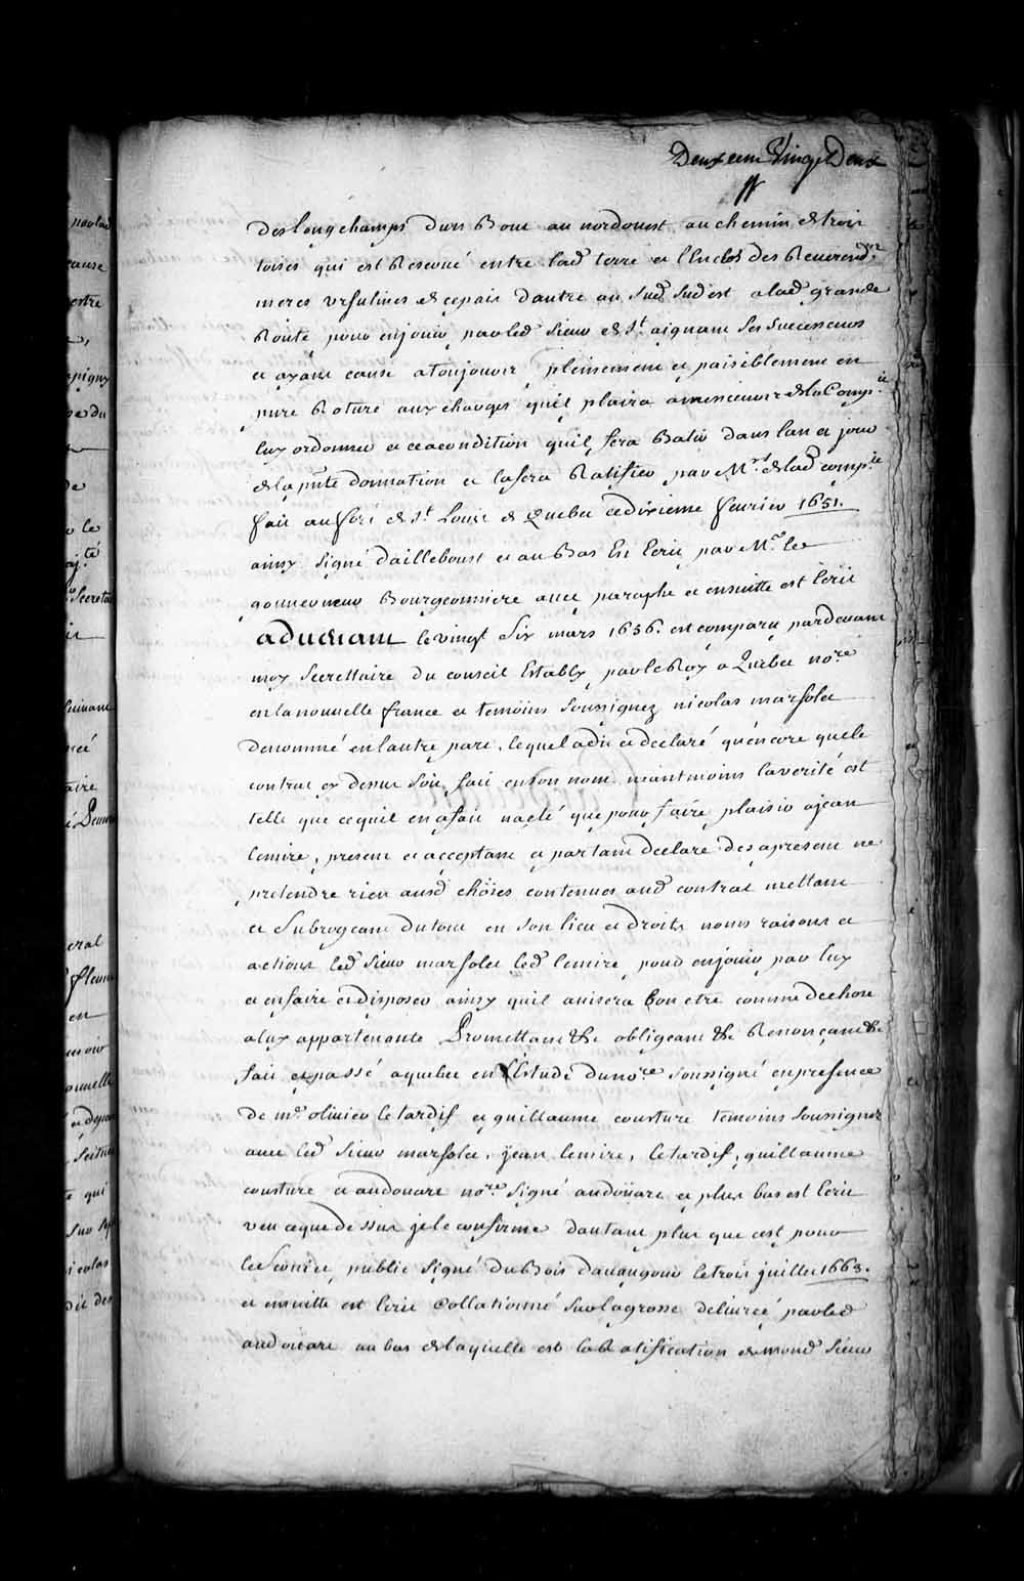 Deux cent Vingt Deux
des longchamps Dun Bout au nordouest au chemin de trois
toises qui est Reservé entre lad. terre et l'Enclos des Reverend.
meres Ursulines et cepair Dautre au Sud Sudest alad. grande
Route pour enjouir parled Sieur de St. aignam Ses Successeurs
et ayant cause atoujours, pleinement et paisiblement en
pure Roture aux charges quil plaira amessieurs de la Comp.ie
luy ordonner et acondition quil fera Batir dans lan et jour
de la pnte donnation et lafera Ratifier par Mrs. de lad comp.ie
fait aufort de St. Louis de Quebec cedixieme fevrier 1651.
ainsy Signé dailleboust et au Bas Est Ecrit par Mr. le
gouverneur Bourgeonniere avec paraphe et ensuitte est Ecrit
aducnant le vingt Six mars 1656. est comparu pardevant
moy Secrettaire du conseil Establÿ parle Roy a Quebec nore.
en la nouvelle france et temoins Soussignez nicolas marsolet
denommé en lautre part, lequel adit et declaré quencore que le
contrat cy dessus Soit fait enson nom neantmoins la verité est
telle que cequil en afait naeté que pour faire plaisir ajean
lemire, present et acceptant et partant declare des apresent ne
pretendre rien ausd choses contenues aud contrat mettant
et Subrogeant du tout en Son lieu et droits noms raisons et
actions led Sieur marsolet led lemire pour enjouir par luy
et enfaire et disposer ainsy quil avisera bon etre comme dechose
aluy appartenante Promettant &c obligeant &c Renonçant &c
fait et passé aquebec en l'Estude dunore. soussigné en presence
De mr. olivier letardif et guillaume cousture temoins soussignez
avec led Sieur marsolet, jean lemire, letardif, guillaume
cousture et audouare nore. Signé audoüare et plus bas est Ecrit
veu ceque dessus je le confirme dautant plus que cest pour
le Service public Signé DuBois davaugour le trois juillet 1663.
et ensuitte est Ecrit Collationné Surlagrosse delivrée parled
audouare au bas delaquelle est la Ratification de mond Sieur